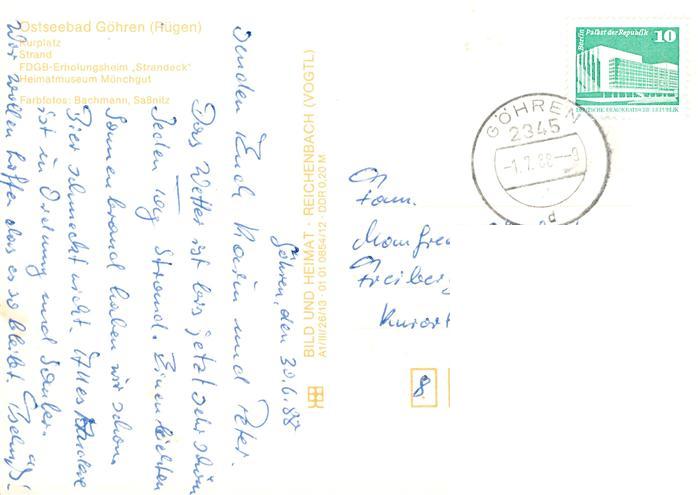 Ostseebad Göhren (Rügen)
Kurplatz
Strand
FDGB-Erholungsheim „Strandeck"
Heimatmuseum Mönchgut
Farbfotos: Bachmann, Saßnitz
BILD UND HEIMAT · REICHENBACH (VOGTL)
A1/III/26/13 · 01 01 0854/12 · DDR 0,20 M
Berlin Palast der Republik 10
DEUTSCHE DEMOKRATISCHE REPUBLIK
GÖHREN
2345
-1.7.88--9
d
Göhren, den 30.6.88
senden Euch Karin und Peter.
Das Wetter ist bis jetzt sehr schön
Jeden Tag Strand. Einen leichten
Sonnenbrand haben wir schon.
Bier schmeckt nicht. Alles andere
ist in Ordnung und sauber.
Wir wollen hoffen das es so bleibt.
Fam.
Manfre
Freiber
Kurort
8.